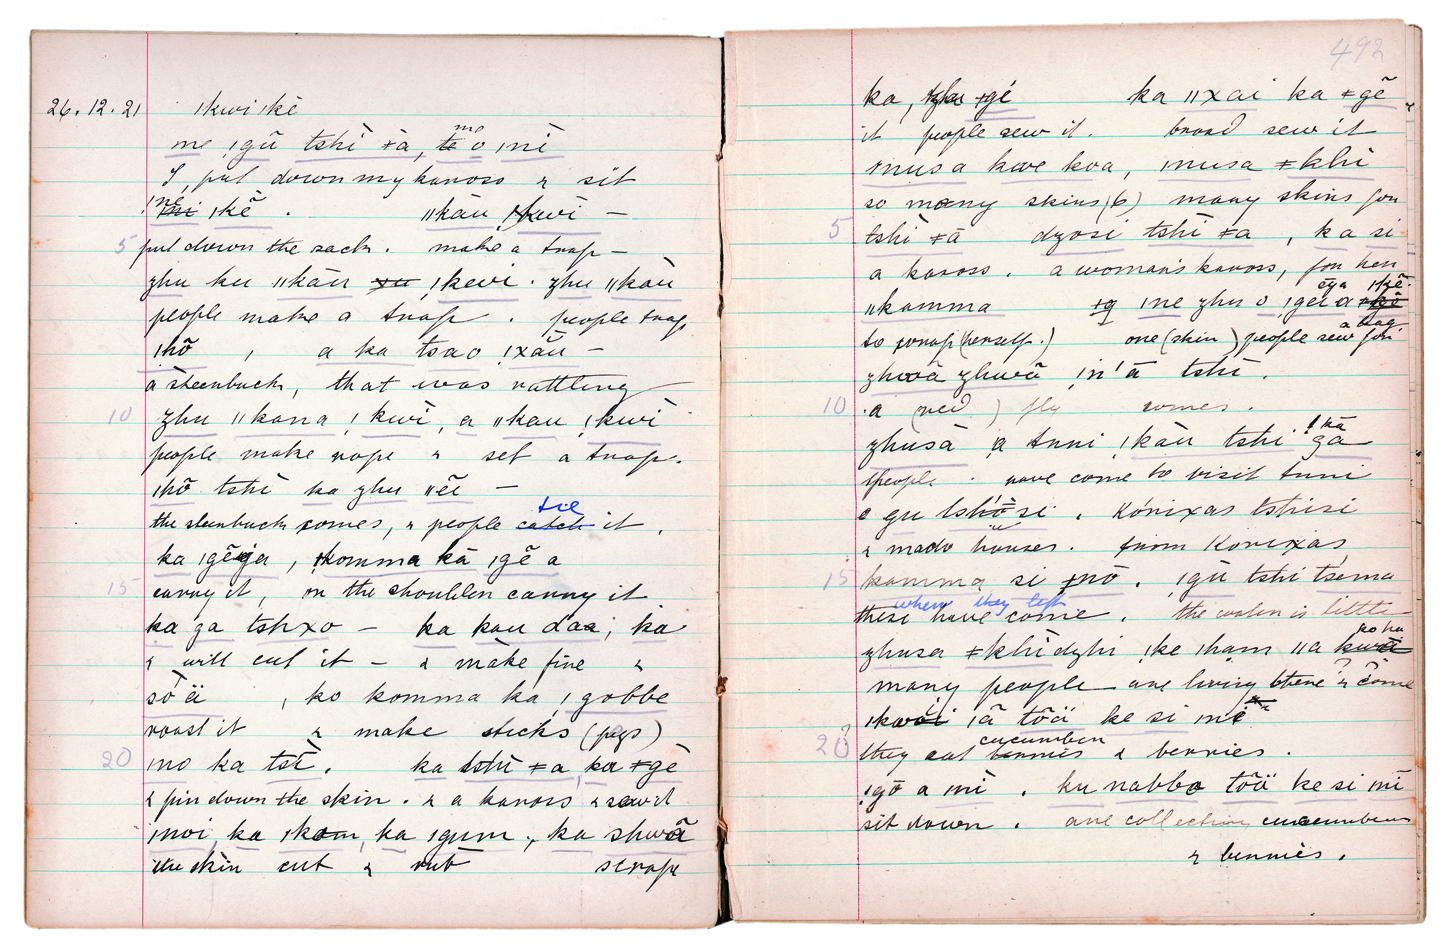 26.12.21 ǀkwi ǀkè
me ǀgū tshì ǂà, te me o ǀnì
I, put down my kaross & sit
ǀne ǀkẽ . ǁkāu ǀkwì —
5 put down the sack. make a trap —
zhu ku ǁkāu xu ǃkwi . zhu ǁkāu
people make a trap . people trap
ǀnõ , a ka tsao ǀxāu —
a steenbuck, that was rattling
10 zhu ǁkana ǃkwì, a ǁkau ǃkwì
people make rope & set a trap.
ǀnõ tshì ka zhu ǁẽi —
tie
the steenbuck comes, & people catch it ,
ka ǀgẽ ga , komma kā ǀgẽ a
15 carry it, on the shoulder carry it
ka ga tshxo — ka kau daa ; ka
& will cut it — & make fire &
sò ä , ko komma ka, ǀgobbe
roast it & make sticks (pegs)
20 ǀno ka tsì . ka tshì ǂa ka ǂgè
& pin down the skin . & a kaross & sew it
ǀnoi, ka ǀkom, ka ǀgum ., ka shwã
the skin cut & rub scrape
492
ka, zhu ǂgé ka ǁxai ka ǂgẽ
it people sew it . broad sew it
musa kwe koa, ǀnusa ǂkhì
so many skins (6) many skins for
5 tshì ǂā dzosi tshì ǂa , ka si
a kaross . a woman's kaross, for her
ega ǀkẽ.
ǁkamma ǀne zhu o ǀgei a ǂgẽ
a bag
to wrap (herself.) one (skin) people sew for
zhwà zhwã ǀn'ā tshì .
10 . a (red ) fly comes .
ǀkā
zhusà a tuni ǀkāu tshi ga
people . have come to visit tuni
e gu tshõ si . Kórixas tshisi
& made houses . from Korixas,
15 komma si ǂnõ . ǀgū tshi tsema
where they left
these have come . the water is little
ko ha
zhusa ǂkhì dzhi ǀke ǀham ǁa kwa
many people are living there & come
ǀkwai ǀā tõä ke si mi
cucumber
20 they eat berries & berries .
ǀgõ a mì . ku nabba tõä ke si mi
sit down . are collecting cucumbers
& berries .